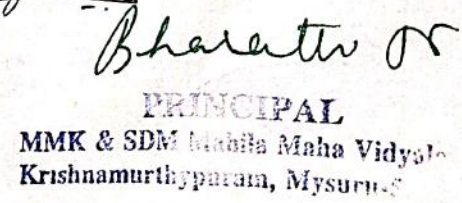 Bharathi
PRINCIPAL
MMK & SDM Mahila Maha Vidyala
Krishnamurthypuram, Mysuru